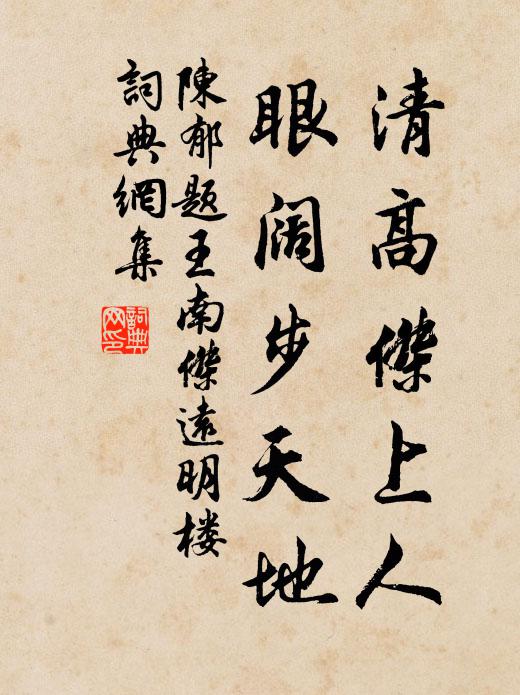 清高傑上人
眼阔步天地
陳郁题王南傑遠明楼
詞典網集
詞典网印